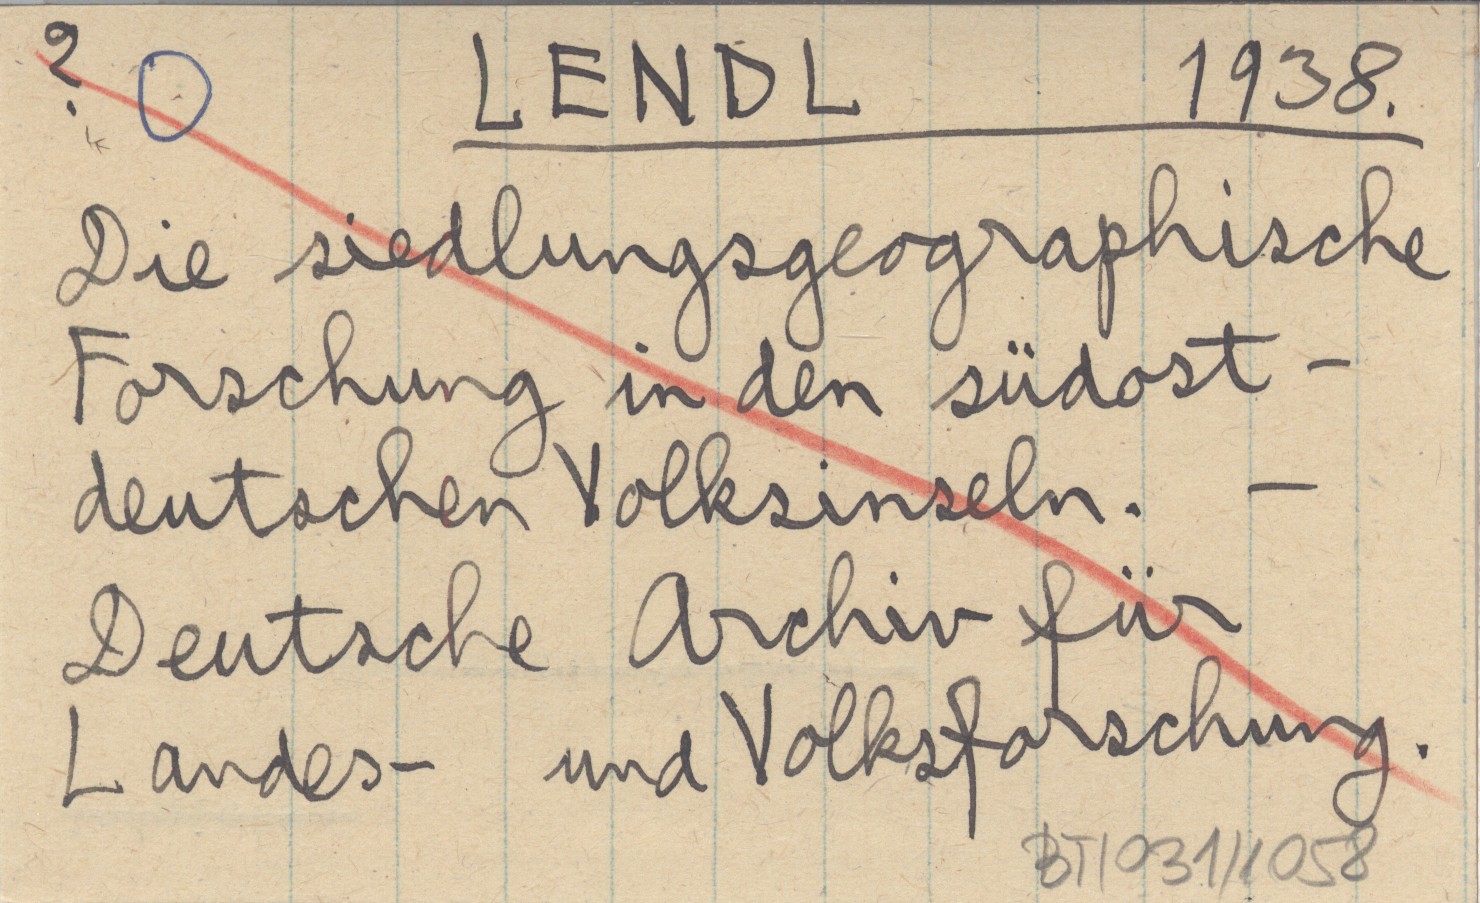 ? LENDL 1938.
Die siedlungsgeographische
Forschung in den südost-
deutschen Volksinseln. –
Deutsche Archiv für
Landes- und Volksforschung.
BT/031/1058